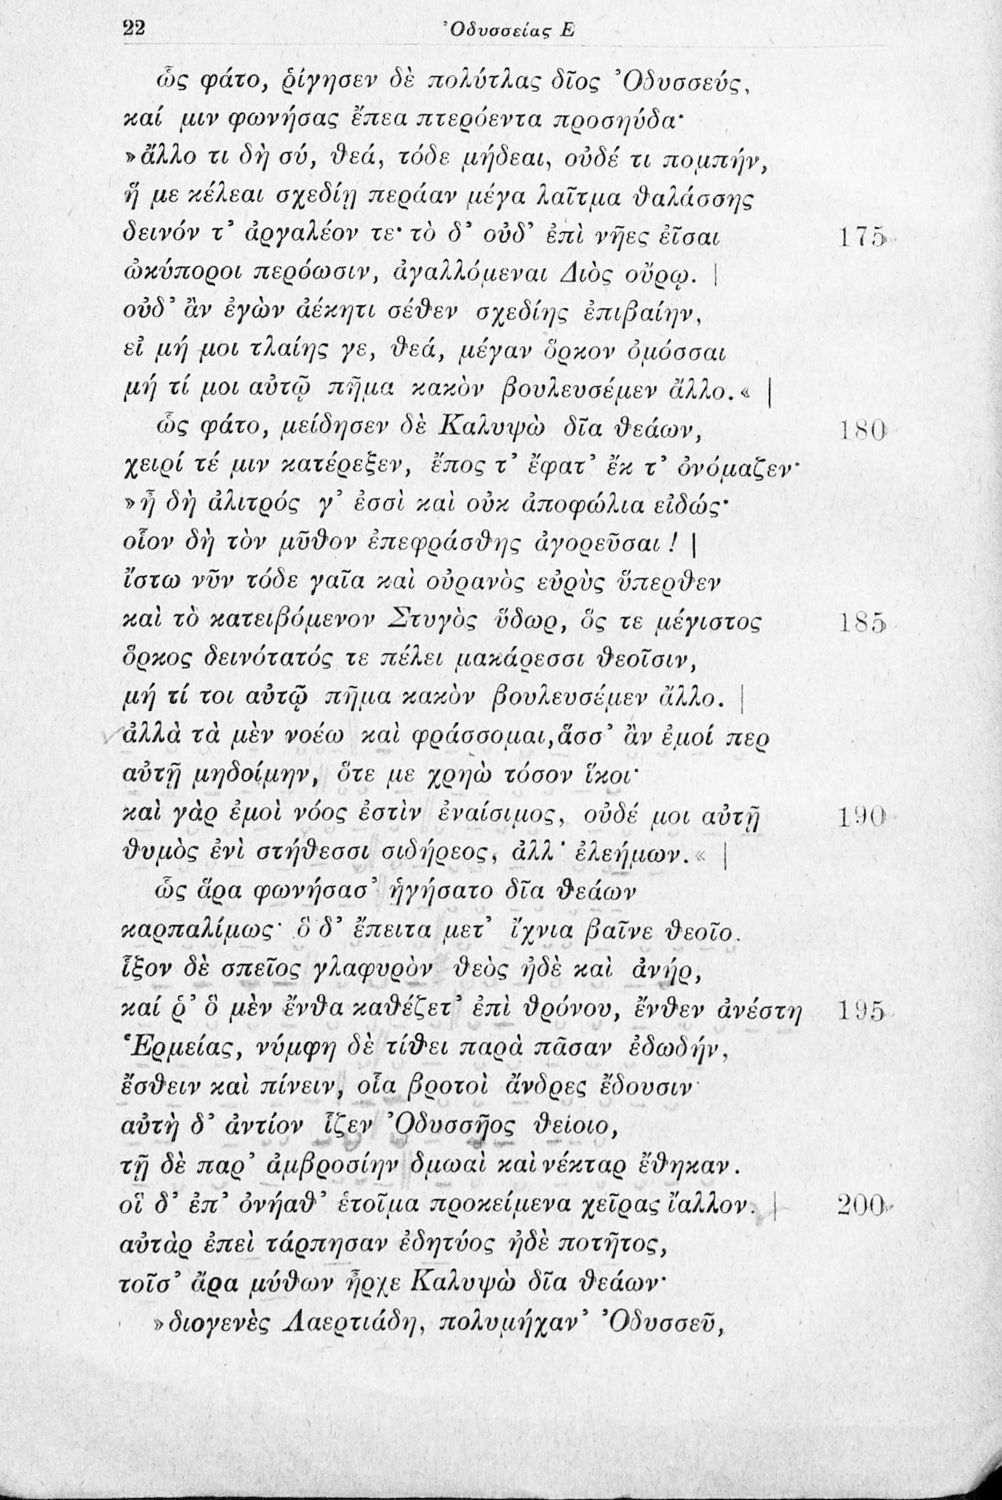 22 Ὀδυσσείας Ε
ὣς φάτο, ῥίγησεν δὲ πολύτλας δῖος Ὀδυσσεύς,
καί μιν φωνήσας ἔπεα πτερόεντα προσηύδα·
»ἄλλο τι δὴ σύ, θεά, τόδε μήδεαι, οὐδέ τι πομπήν,
ἥ με κέλεαι σχεδίῃ περάαν μέγα λαῖτμα θαλάσσης
δεινόν τ' ἀργαλέον τε· τὸ δ' οὐδ' ἐπὶ νῆες ἐῖσαι 175
ὠκύποροι περόωσιν, ἀγαλλόμεναι Διὸς οὔρῳ. |
οὐδ' ἂν ἐγὼν ἀέκητι σέθεν σχεδίης ἐπιβαίην,
εἰ μή μοι τλαίης γε, θεά, μέγαν ὅρκον ὀμόσσαι
μή τί μοι αὐτῷ πῆμα κακὸν βουλευσέμεν ἄλλο.« |
ὣς φάτο, μείδησεν δὲ Καλυψὼ δῖα θεάων, 180
χειρί τέ μιν κατέρεξεν, ἔπος τ' ἔφατ' ἔκ τ' ὀνόμαζεν·
»ἦ δὴ ἀλιτρός γ' ἐσσὶ καὶ οὐκ ἀποφώλια εἰδώς·
οἷον δὴ τὸν μῦθον ἐπεφράσθης ἀγορεῦσαι! |
ἴστω νῦν τόδε γαῖα καὶ οὐρανὸς εὐρὺς ὕπερθεν
καὶ τὸ κατειβόμενον Στυγὸς ὕδωρ, ὅς τε μέγιστος 185
ὅρκος δεινότατός τε πέλει μακάρεσσι θεοῖσιν,
μή τί τοι αὐτῷ πῆμα κακὸν βουλευσέμεν ἄλλο. |
ἀλλὰ τὰ μὲν νοέω καὶ φράσσομαι, ἅσσ' ἂν ἐμοί περ
αὐτῇ μηδοίμην, ὅτε με χρηὼ τόσον ἵκοι·
καὶ γὰρ ἐμοὶ νόος ἐστὶν ἐναίσιμος, οὐδέ μοι αὐτῇ 190
θυμὸς ἐνὶ στήθεσσι σιδήρεος, ἀλλ' ἐλεήμων.« |
ὣς ἄρα φωνήσασ' ἡγήσατο δῖα θεάων
καρπαλίμως· ὃ δ' ἔπειτα μετ' ἴχνια βαῖνε θεοῖο.
ἷξον δὲ σπεῖος γλαφυρὸν θεὸς ἠδὲ καὶ ἀνήρ,
καί ῥ' ὃ μὲν ἔνθα καθέζετ' ἐπὶ θρόνου, ἔνθεν ἀνέστη 195
Ἑρμείας, νύμφη δὲ τίθει παρὰ πᾶσαν ἐδωδήν,
ἔσθειν καὶ πίνειν, οἷα βροτοὶ ἄνδρες ἔδουσιν·
αὐτὴ δ' ἀντίον ἷζεν Ὀδυσσῆος θείοιο,
τῇ δὲ παρ' ἀμβροσίην δμωαὶ καὶ νέκταρ ἔθηκαν.
οἳ δ' ἐπ' ὀνήαθ' ἑτοῖμα προκείμενα χεῖρας ἴαλλον. | 200
αὐτὰρ ἐπεὶ τάρπησαν ἐδητύος ἠδὲ ποτῆτος,
τοῖσ' ἄρα μύθων ἦρχε Καλυψὼ δῖα θεάων·
»διογενὲς Λαερτιάδη, πολυμήχαν' Ὀδυσσεῦ,